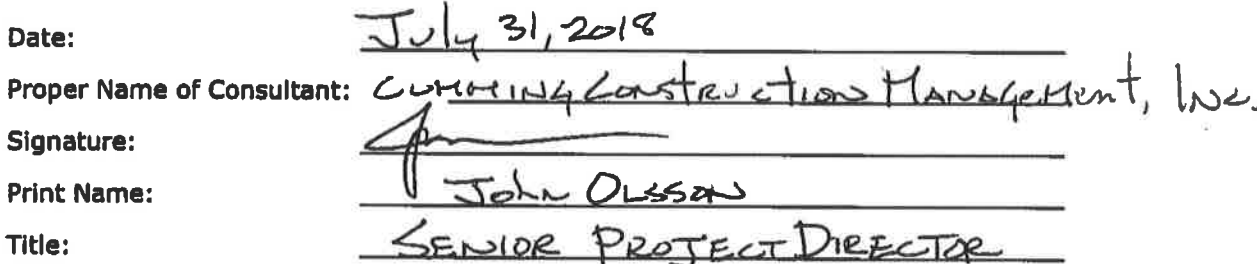 Date: July 31, 2018
Proper Name of Consultant: Cumming Construction Management, Inc.
Signature:
Print Name: John Olsson
Title: Senior Project Director